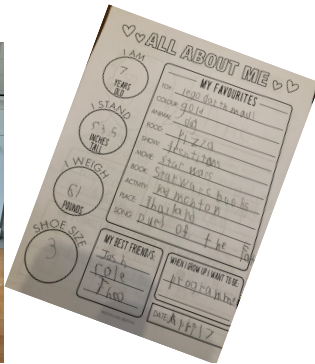 ALL ABOUT ME
I AM
7
YEARS OLD
I STAND
53.5
INCHES TALL
I WEIGH
61
POUNDS
SHOE SIZE
3
MY FAVOURITES
TOY: lego darth maul
COLOUR: gold
ANIMAL:
FOOD: Pizza
SHOW:
MOVIE: star wars
BOOK: star wars books
ACTIVITY:
PLACE: Thailand
SONG: duel of the
MY BEST FRIENDS:
Josh
cole
Theo
WHEN I GROW UP I WANT TO BE:
programmer
DATE: